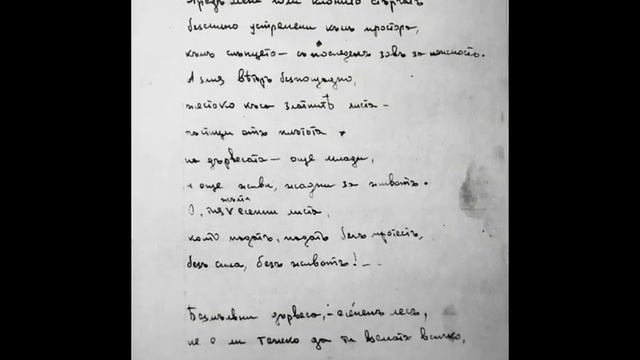 Предъ мене голи клонитѣ стърчатъ
безсилно устремени къмъ простора,
къмъ слънцето – съ последенъ зовъ за нежность.
А зния вѣтъръ безпощадно,
жестоко къса златнитѣ листа –
частици отъ плътьта
на дървесата – още млади,
и още живи, жадни за животъ.
О, тия жълти есенни листа,
които падатъ, падатъ безъ протестъ,
безъ сила, безъ животъ! –
Безмълвни дървеса, – есененъ лесъ,
не е ли тежко да ти взематъ всичко,